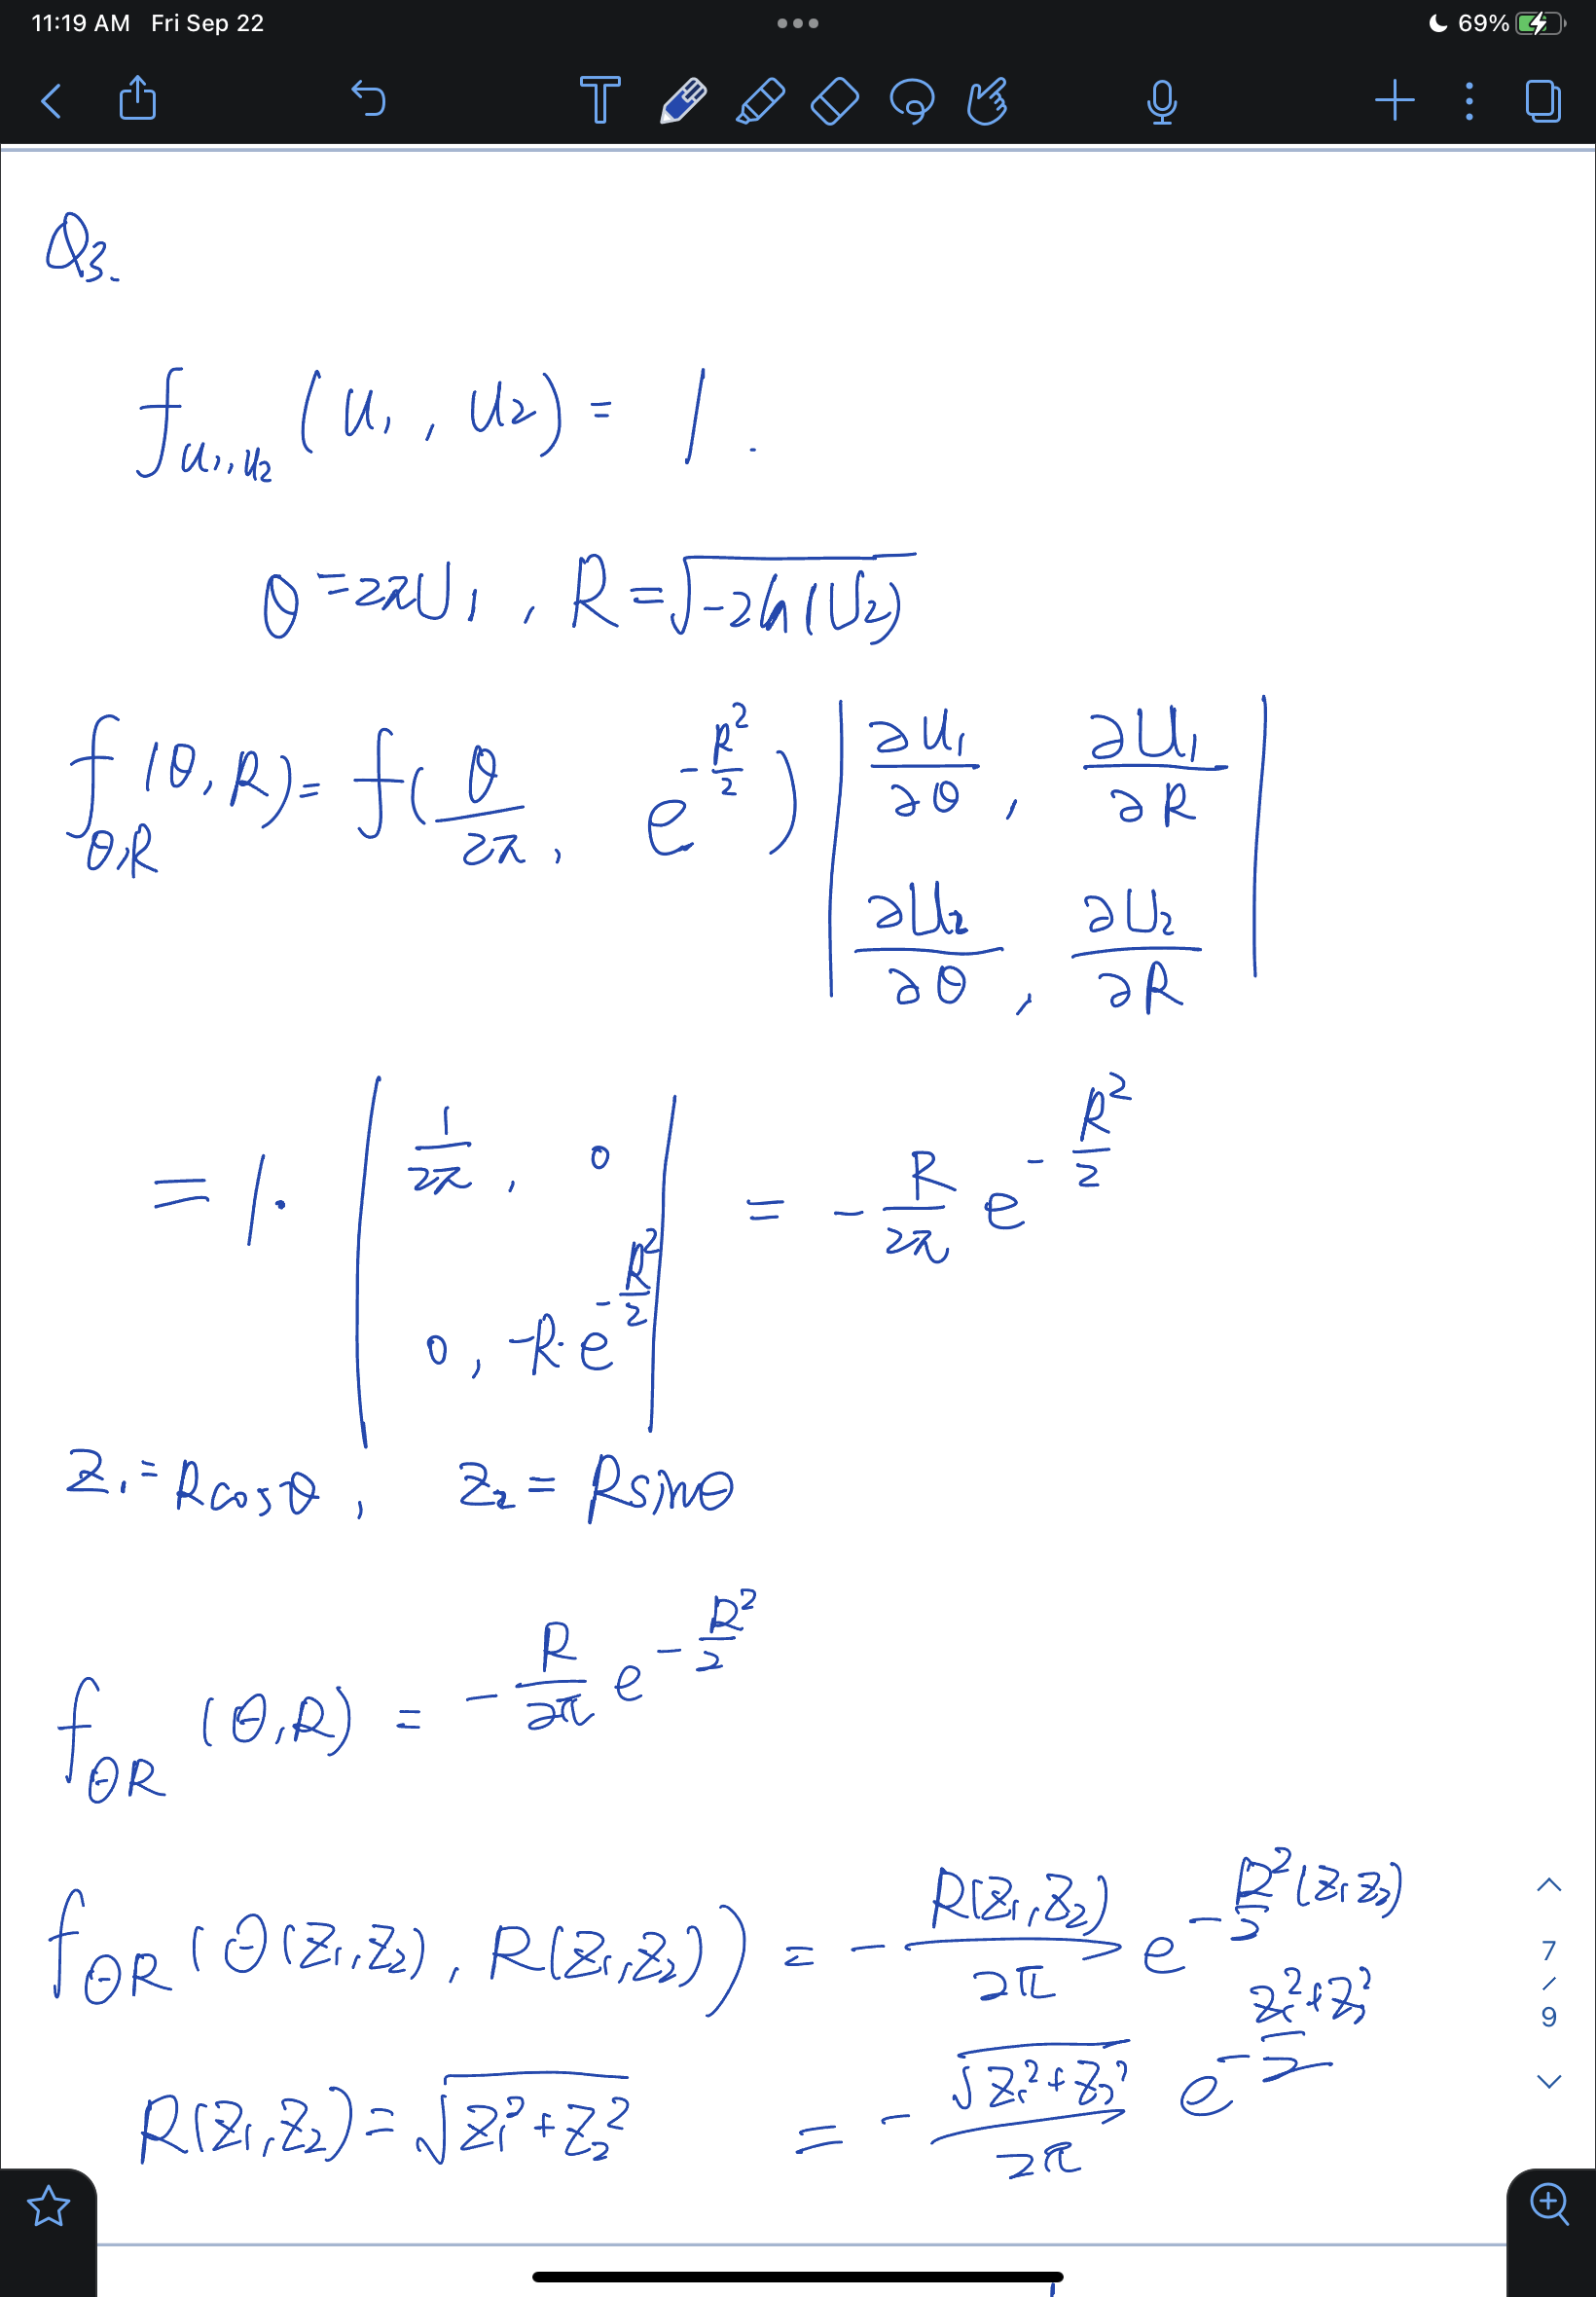 11:19 AM Fri Sep 22 69%
T
Q3.
f_{U1,U2} (U1, U2) = 1.
θ = 2πU1, R = √(-2ln(U2))
f_{θ,R} (θ, R) = f( θ/2π, e^{-R²/2} ) | ∂U1/∂θ, ∂U1/∂R
∂U2/∂θ, ∂U2/∂R |
= 1. | 1/2π, 0
0, -R·e^{-R²/2} | = - R/2π e^{-R²/2}
Z1 = R cosθ, Z2 = R sinθ
f_{θR} (θ, R) = - R/2π e^{-R²/2}
f_{θR} (θ(Z1,Z2), R(Z1,Z2)) = - R(Z1,Z2)/2π e^{-R²(Z1,Z2)/2}
R(Z1,Z2) = √(Z1²+Z2²) = - √(Z1²+Z2²)/2π e^{-(Z1²+Z2²)/2}
7
/
9